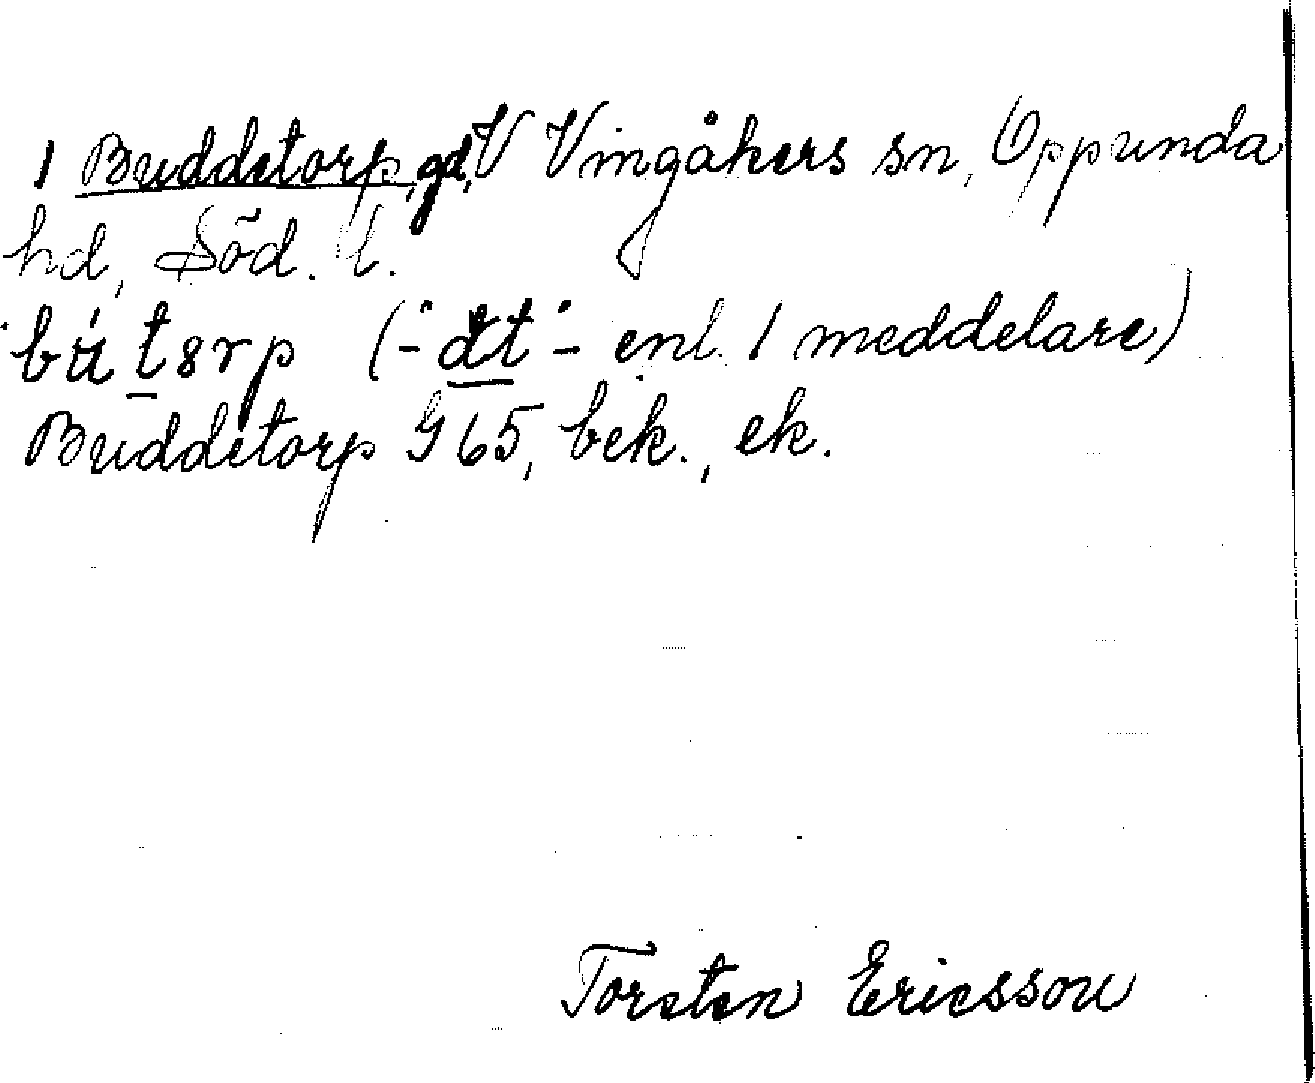 1 Buddetorp, gd, V Vingåkers sn, Oppunda
hd, Söd. l.
(-"- enl. 1 meddelare)
Buddetorp G 65, bek., ek.
Torsten Ericsson